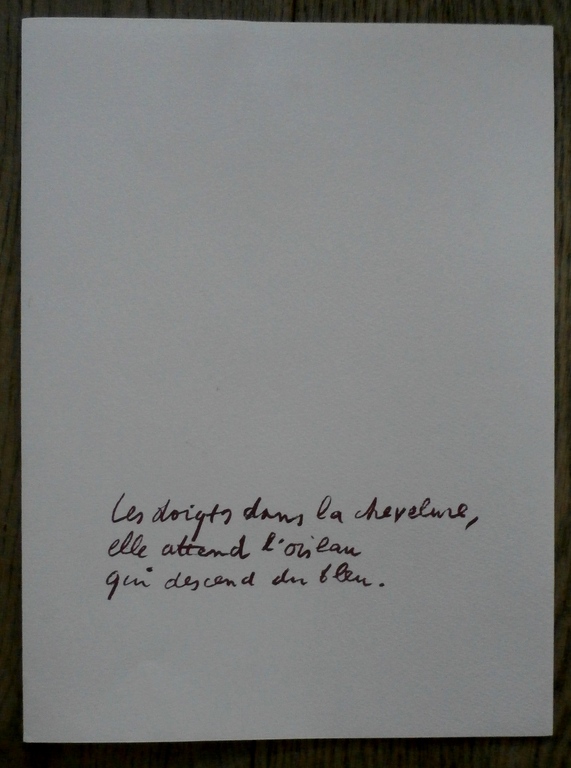 Les doigts dans la chevelure,
elle attend l'oiseau
qui descend du bleu.